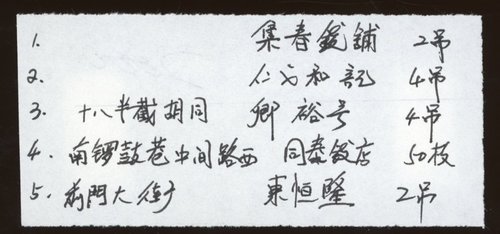 1. 集春钱铺 2吊
2. 仁义和記 4吊
3. 十八半截胡同 鄉裕号 4吊
4. 南锣鼓巷中间路西 同泰钱店 50枚
5. 前門大街 東恒隆 2吊